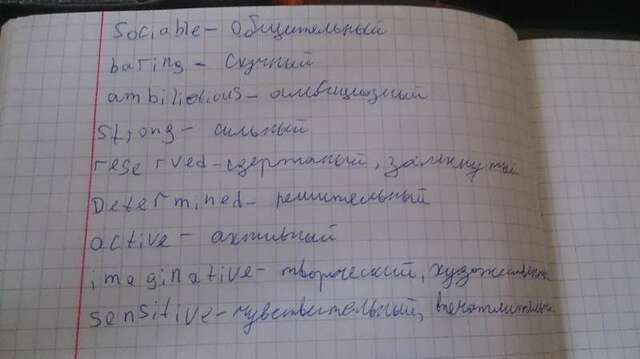 Sociable - Общительный
baring - Скучный
ambilidious - амбициозный
strong - сильный
reserved - сдержаный, замкнутый
Determined - решительный
active - активный
imaginative - творческий, художественный
sensitive - чувствительный, впечатлительный